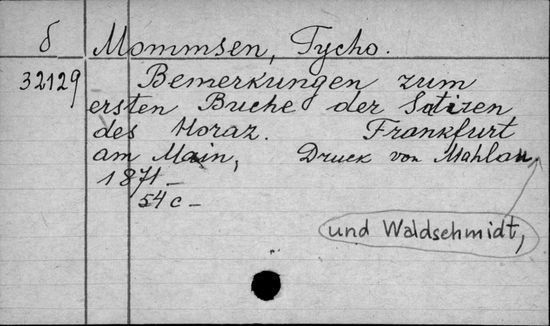 δ Mommsen, Tycho.
32129 Bemerkungen zum
ersten Buche der Satizen
des Horaz. Frankfurt
am Main, Druck von Mahlau,
1871 –
54 c –
und Waldschmidt,